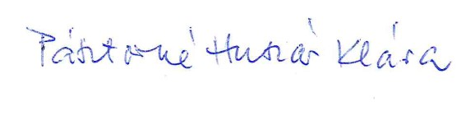 Pásztorné Huszár Klára